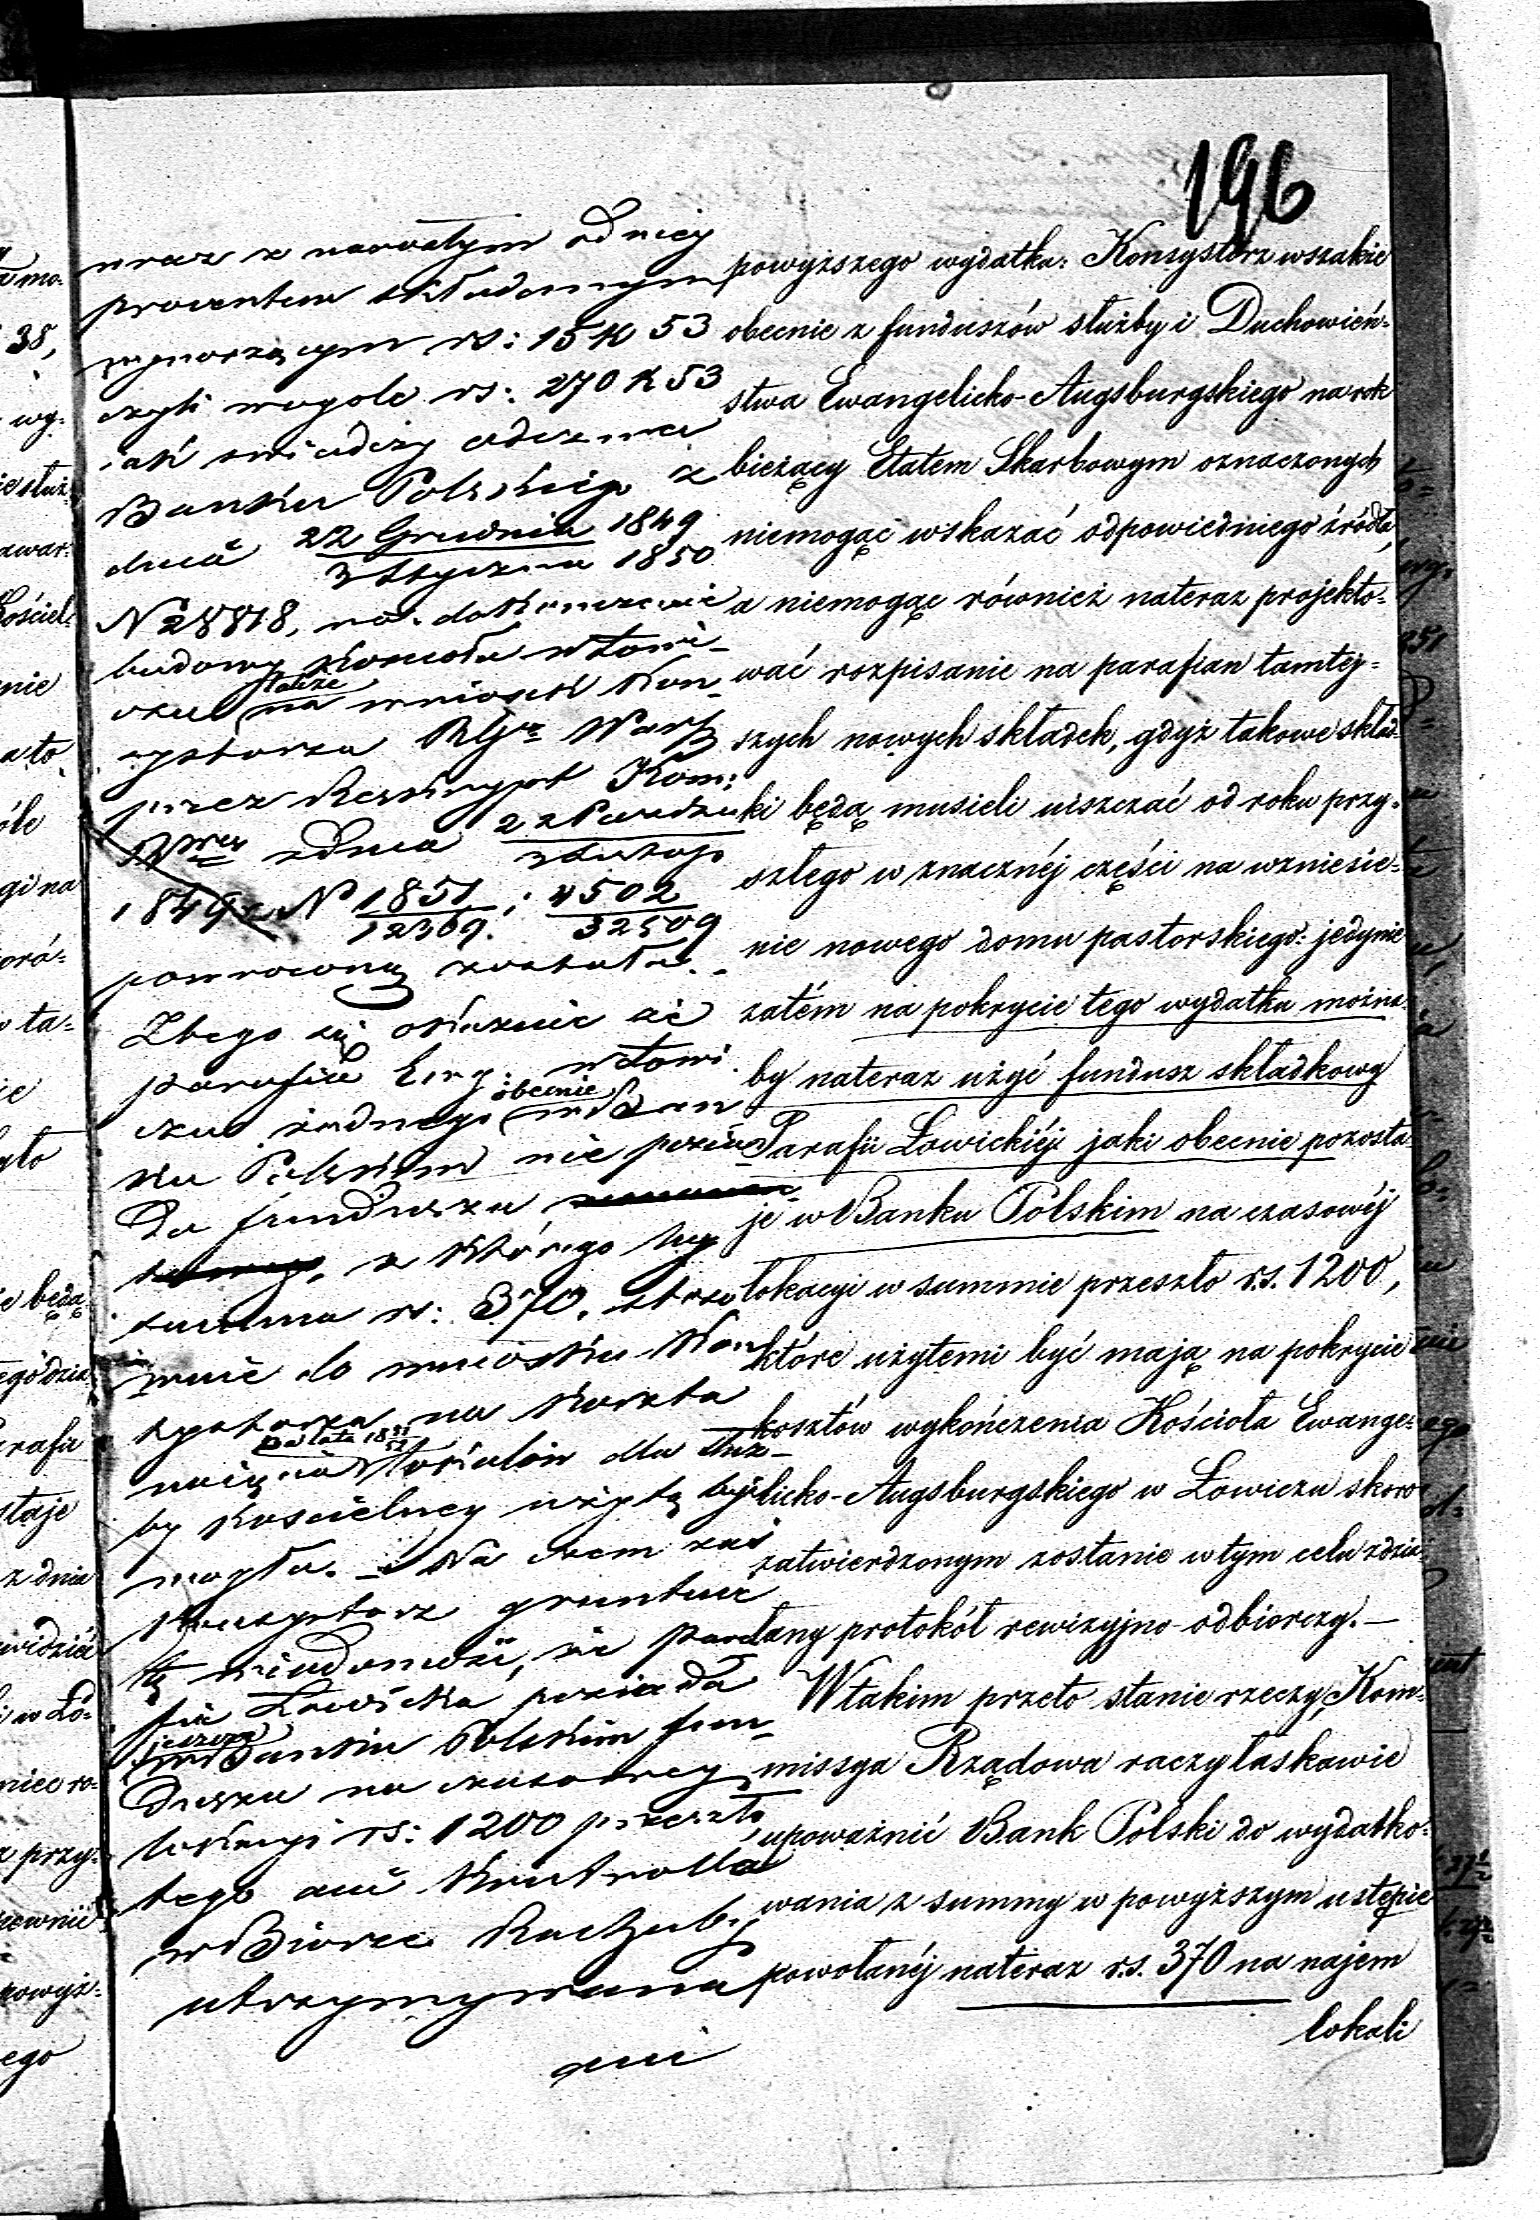 196
wraz z narosłym od niej
procentem składanym
wynoszącym rs: 15 k 53
czyli w ogole rs: 270 k 53
jak świadczy odezwa
Banku Polskiego z
dnia 22 Grudnia 1849
3 Stycznia 1850
N 28818, na dokończenie
budowy kościoła w Łowi-
czu także na wniosek Kon-
systorza
przez Reskrypt Kom:
z dnia
1849 r. N 1851 / 12369. : 4502 / 32509
powrócona została.
Z tego się okazuje że
parafia Ewg. w Łowi-
czu żadnego obecnie w Ban
ku Polskim nie posia
da funduszu
z którego by
summa rs: 370. stoso
wnie do wniosku Kon
systorza na koszta
najęcia za lata 1851/52 lokalów dla służ-
by kościelnej użytą być
mogła. Na czem zaś
Konsystorz gruntuje
tę wiadomość, że para
fia Łowicka posiada
jeszcze w Banku Polskim fun-
dusze na czasowej
lokacyi rs: 1200 przeszło,
tego ani Kontrolla
w Biorze Rachuby
utrzymywana
ani
powyższego wydatku: Konsystorz wszakże
obecnie z funduszów służby i Duchowień-
stwa Ewangelicko-Augsburgskiego na rok
bieżący Etatem Skarbowym oznaczonych
niemogąc wskazać odpowiedniego źródła,
a niemogąc również nateraz projekto-
wać rozpisanie na parafian tamtej-
szych nowych składek, gdyż takowe skład-
ki będą musieli uiszczać od roku przy-
szłego w znacznéj części na wzniesie-
nie nowego domu pastorskiego: jedynie
zatém na pokrycie tego wydatku można-
by nateraz użyć fundusz składkowy
Parafii Łowickiéj jaki obecnie pozosta-
je w Banku Polskim na czasowéj
lokacyi w summie przeszło r.s. 1200,
które użytemi być mają na pokrycie
kosztów wykończenia Kościoła Ewange-
licko-Augsburgskiego w Łowiczu skoro
zatwierdzonym zostanie w tym celu zdzia-
łany protokół rewizyjno-odbiorczy.—
W takim przeto stanie rzeczy, Kom-
missya Rządowa raczy łaskawie
upoważnić Bank Polski do wydatko-
wania z summy w powyższym ustępie
powołanéj nateraz r.s. 370 na najem
lokali